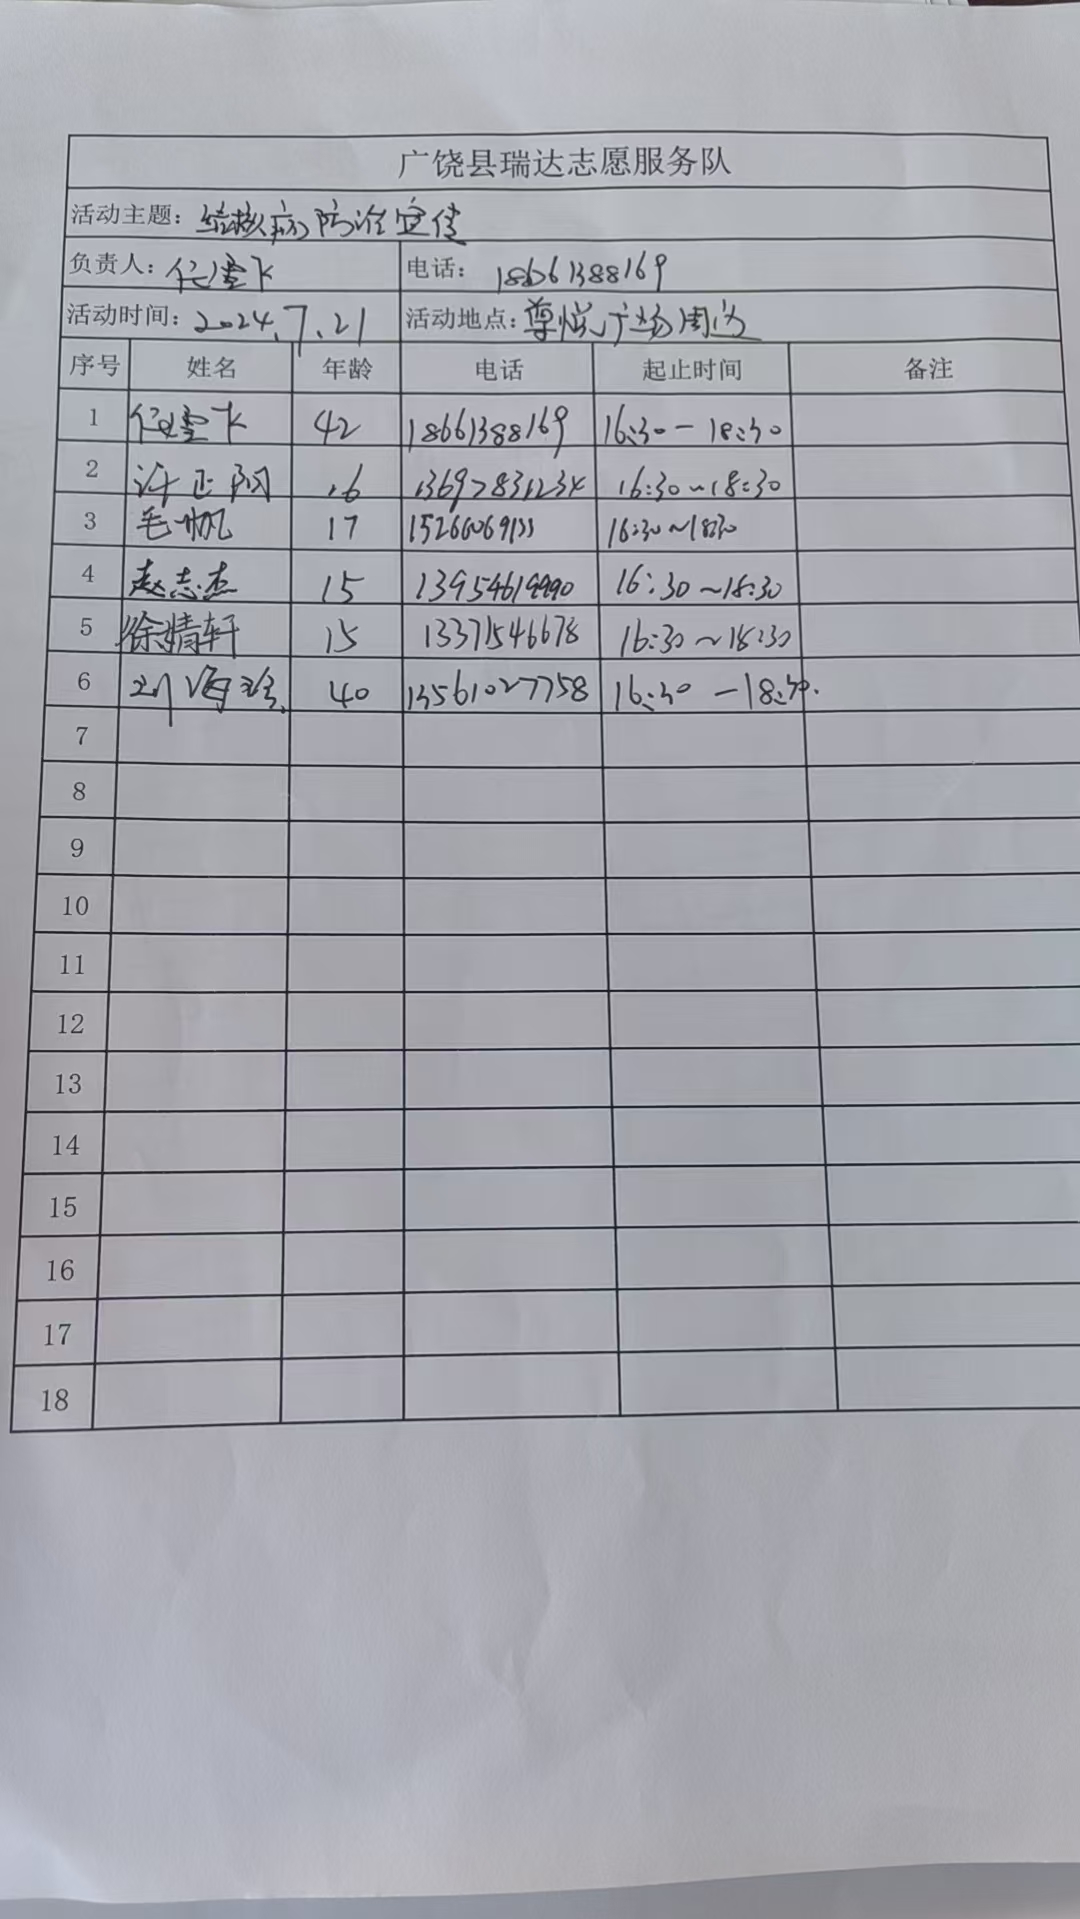 广饶县瑞达志愿服务队
活动主题：结核病防治宣传
负责人： 电话：18661388169
活动时间：2024.7.21 活动地点：尊悦广场周边
序号 姓名 年龄 电话 起止时间 备注
1 42 18661388169 16:30－18:30
2 许正阳 16 16:30~18:30
3 毛帆 17 16:30~18:30
4 赵志杰 15 13954619990 16:30~18:30
5 徐婧轩 15 13371546678 16:30~18:30
6 刘海珍 40 13561027758 16:30－18:30.
7
8
9
10
11
12
13
14
15
16
17
18